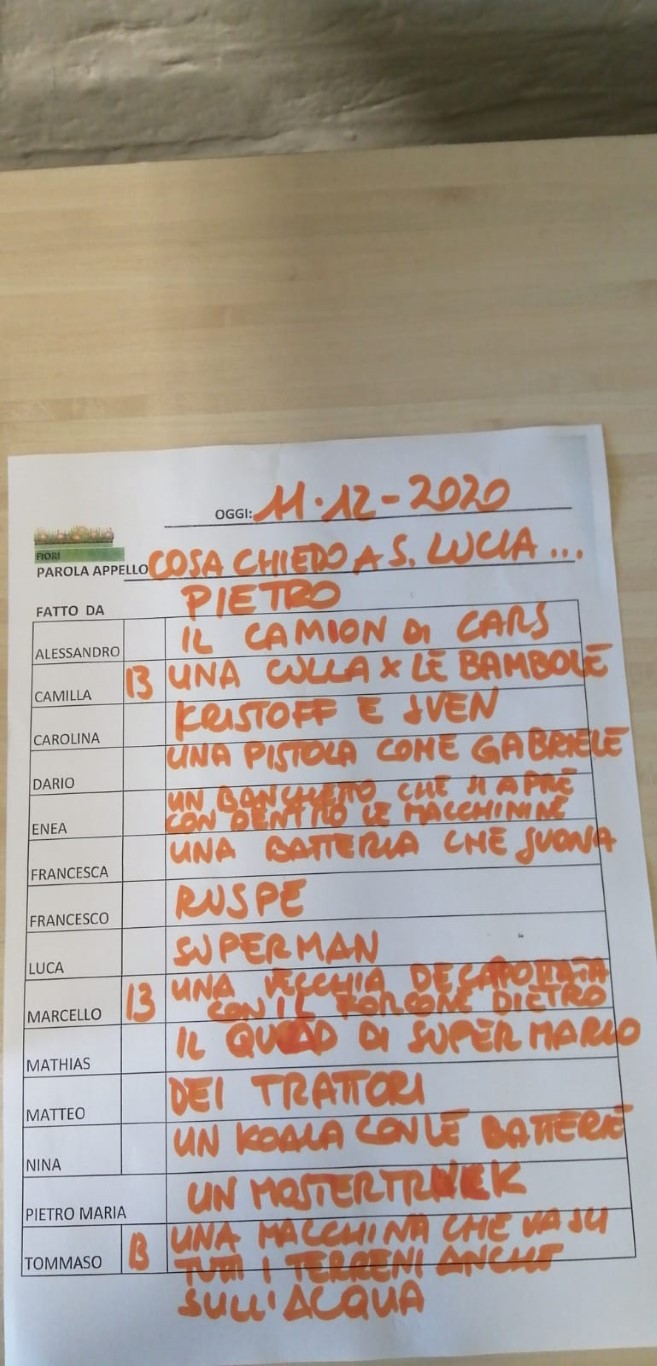 OGGI: 11.12-2020
FIORI
PAROLA APPELLO COSA CHIEDO A S. LUCIA ...
FATTO DA PIETRO
ALESSANDRO IL CAMION DI CARS
CAMILLA B UNA CULLA X LE BAMBOLE
CAROLINA KRISTOFF E SVEN
DARIO UNA PISTOLA COME GABRIELE
ENEA UN BANCHETTO CHE SI APRE
CON DENTRO LE MACCHININE
FRANCESCA UNA BATTERIA CHE SUONA
FRANCESCO RUSPE
LUCA SUPERMAN
MARCELLO B UNA VECCHIA DECAPOTTATA
CON IL FORGONE DIETRO
MATHIAS IL QUAD DI SUPER MARIO
MATTEO DEI TRATTORI
NINA UN KOALA CON LE BATTERIE
PIETRO MARIA UN MOSTERTRUCK
TOMMASO B UNA MACCHINA CHE VA SU
TUTTI I TERRENI ANCHE
SULL'ACQUA